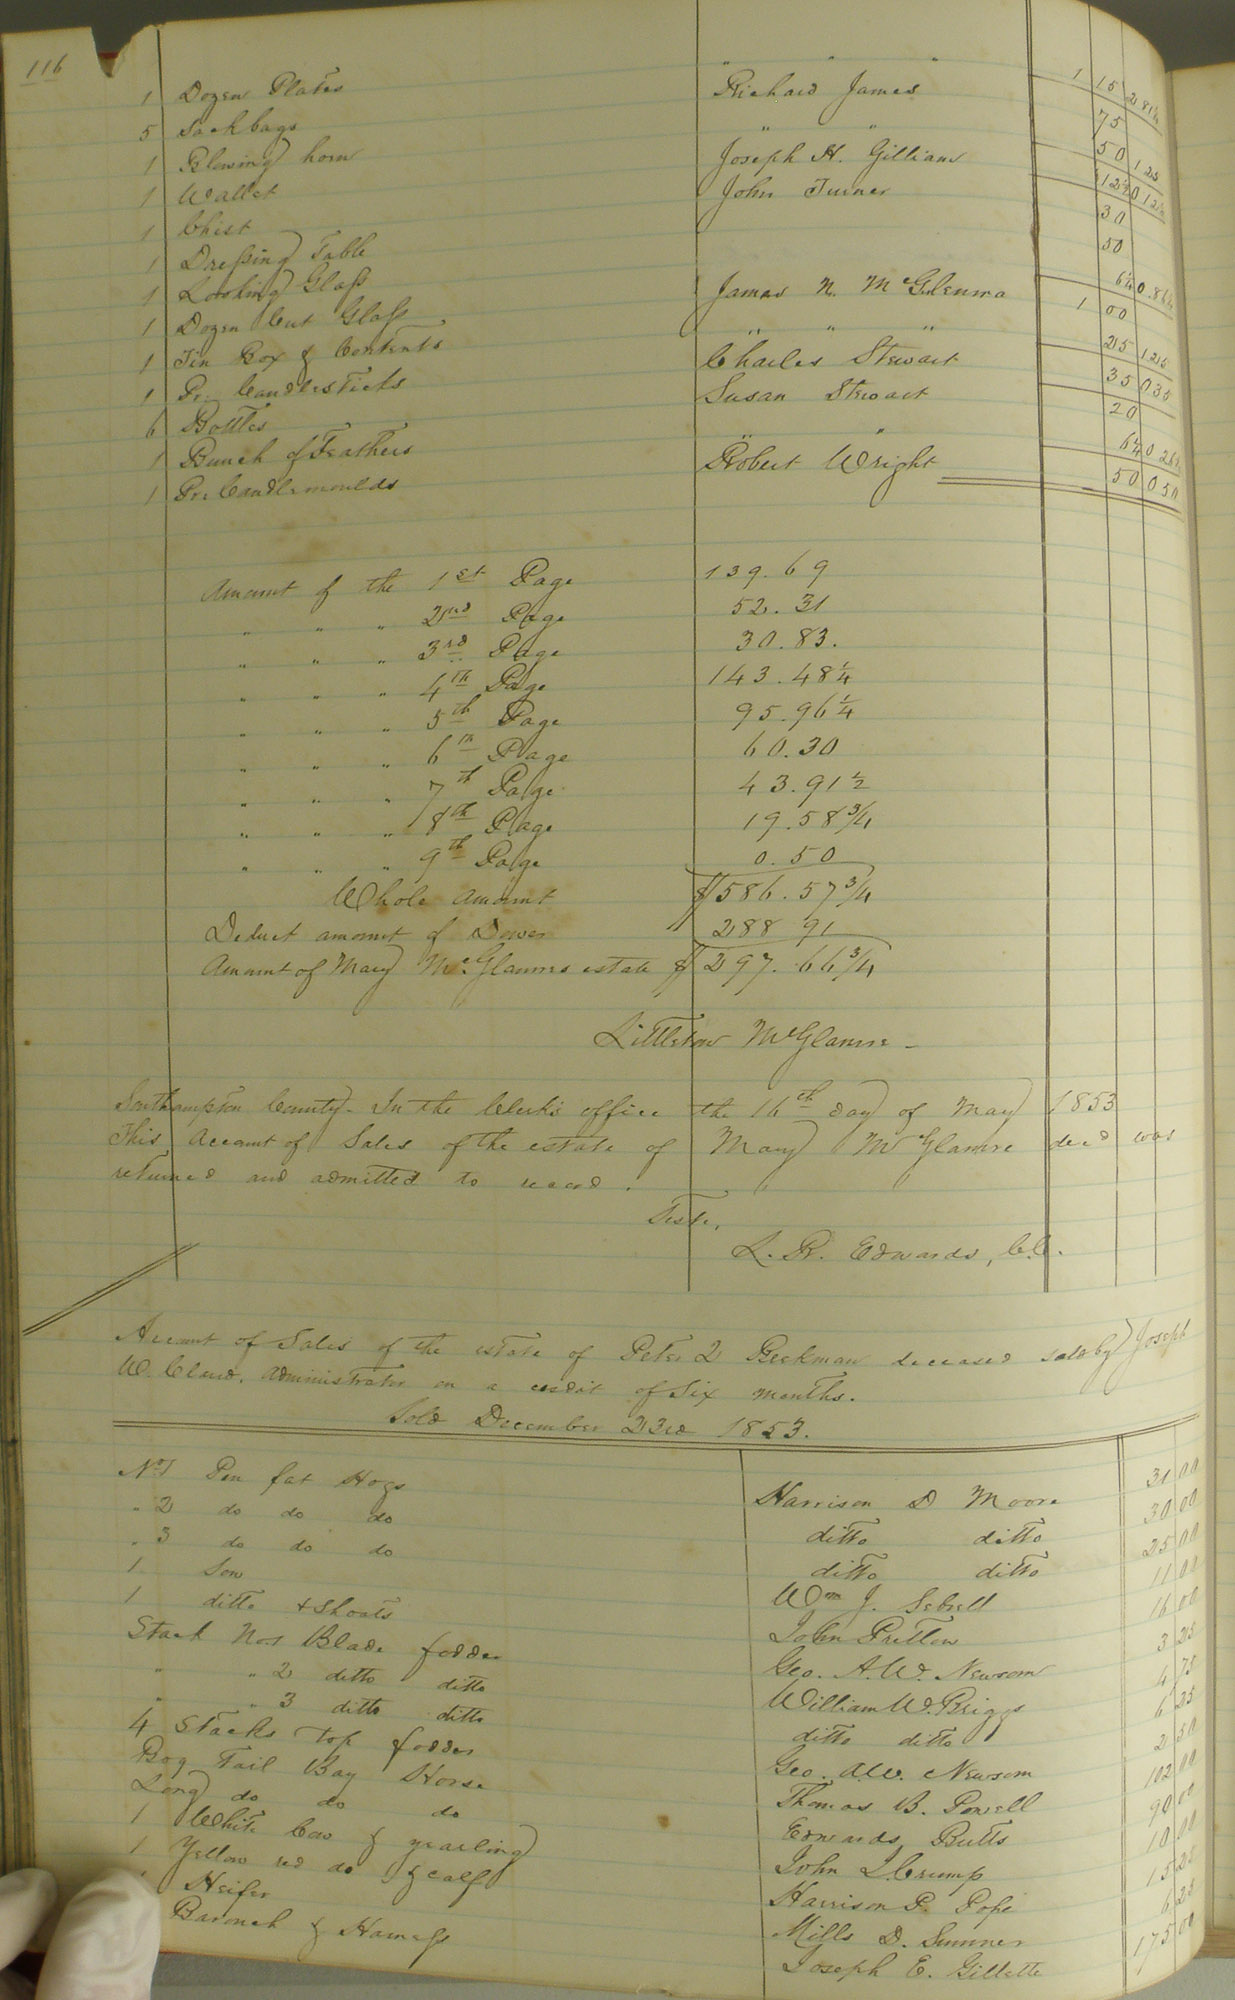 116
" " "
1 Dozen Plates Richard James 1 15 2 81¼
5 Sack bags " " 75
1 Blowing horn Joseph H. Gilliam 50 1 25
1 Wallet John Turner 12½ 0 12½
1 Chist 30
1 Dressing Table 50
1 Looking Glass James N. McGlemra 6¼ 0.86¼
1 Dozen Cut Glass 1 00
1 Tin Box & Contents " " " 25 1 25
1 Pr. Candlesticks Charles Stewart 35 0 35
6 Bottles Susan Stewart 20
1 Bunch of Feathers " " 6¼ 0 26¼
1 Pr. Candlemoulds Robert Wright 50 0 50
Amount of the 1st Page 139.69
" " " 2nd Page 52.31
" " " 3rd Page 30.83.
" " " 4th Page 143.48¼
" " " 5th Page 95.96¼
" " " 6th Page 60.30
" " " 7th Page 43.91½
" " " 8th Page 19.58¾
" " " 9th Page 0.50
Whole amount $586.57¾
Deduct amount of Dower 288 91
Amount of Mary McGlamre estate $297.66¾
Littleton McGlamre –
Southampton County. In the Clerk's office the 16th day of May 1853
This Account of Sales of the estate of Mary McGlamre decd was
returned and admitted to record.
Teste,
L. R. Edwards, C.C.
Account of Sales of the estate of Peter D Beckman deceased sold by Joseph
W. Claud, Administrator on a credit of Six months.
Sold December 23rd 1853.
No 1 Pen fat Hogs Harrison D Moore 31 00
" 2 do do do ditto ditto 30 00
" 3 do do do ditto ditto 25 00
1 Sow Wm J. Sebrell 11 00
1 ditto & Shoats John Pretlow 16 00
Stack No 1 Blade fodder Geo. A. W. Newsom 3 25
" " 2 ditto ditto William W. Briggs 4 75
" " 3 ditto ditto ditto ditto 6 25
4 Stacks Top fodder Geo. A. W. Newsom 2 50
Bog Tail Bay Horse Thomas B. Powell 102 00
Long do do do Edwards Butts 90 00
1 White Cow & yearling John L. Crump 10 00
1 Yellow red do & calf Harrison P. Pope 15 25
1 Heifer Mills D. Sumner 6 25
Barouch & Harness Joseph E. Gillette 175 00